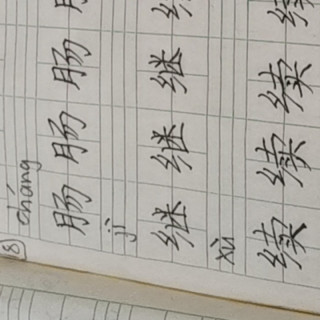 8 cháng
肠 肠 肠
jì
继 继 继
xù
续 续 续